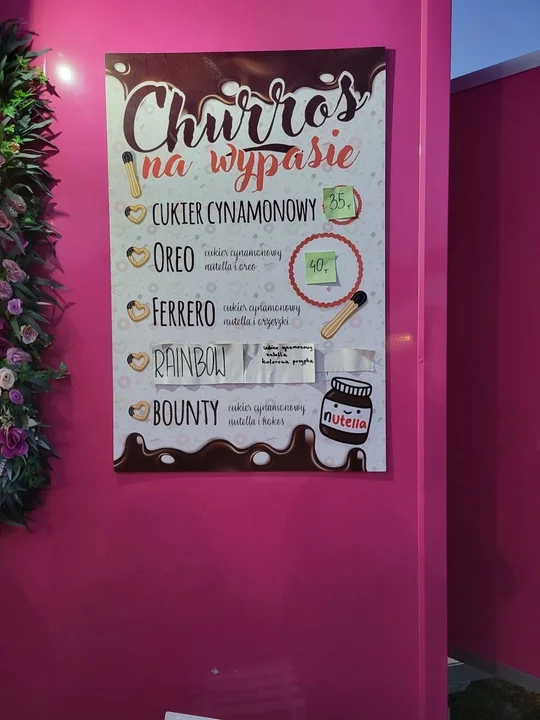 Churros
na wypasie
CUKIER CYNAMONOWY 35,-
OREO cukier cynamonowy
nutella i oreo
40,-
FERRERO cukier cynamonowy
nutella i orzeszki
RAINBOW cukier cynamonowy
nutella
kolorowa posypka
BOUNTY cukier cynamonowy
nutella i kokos
nutella